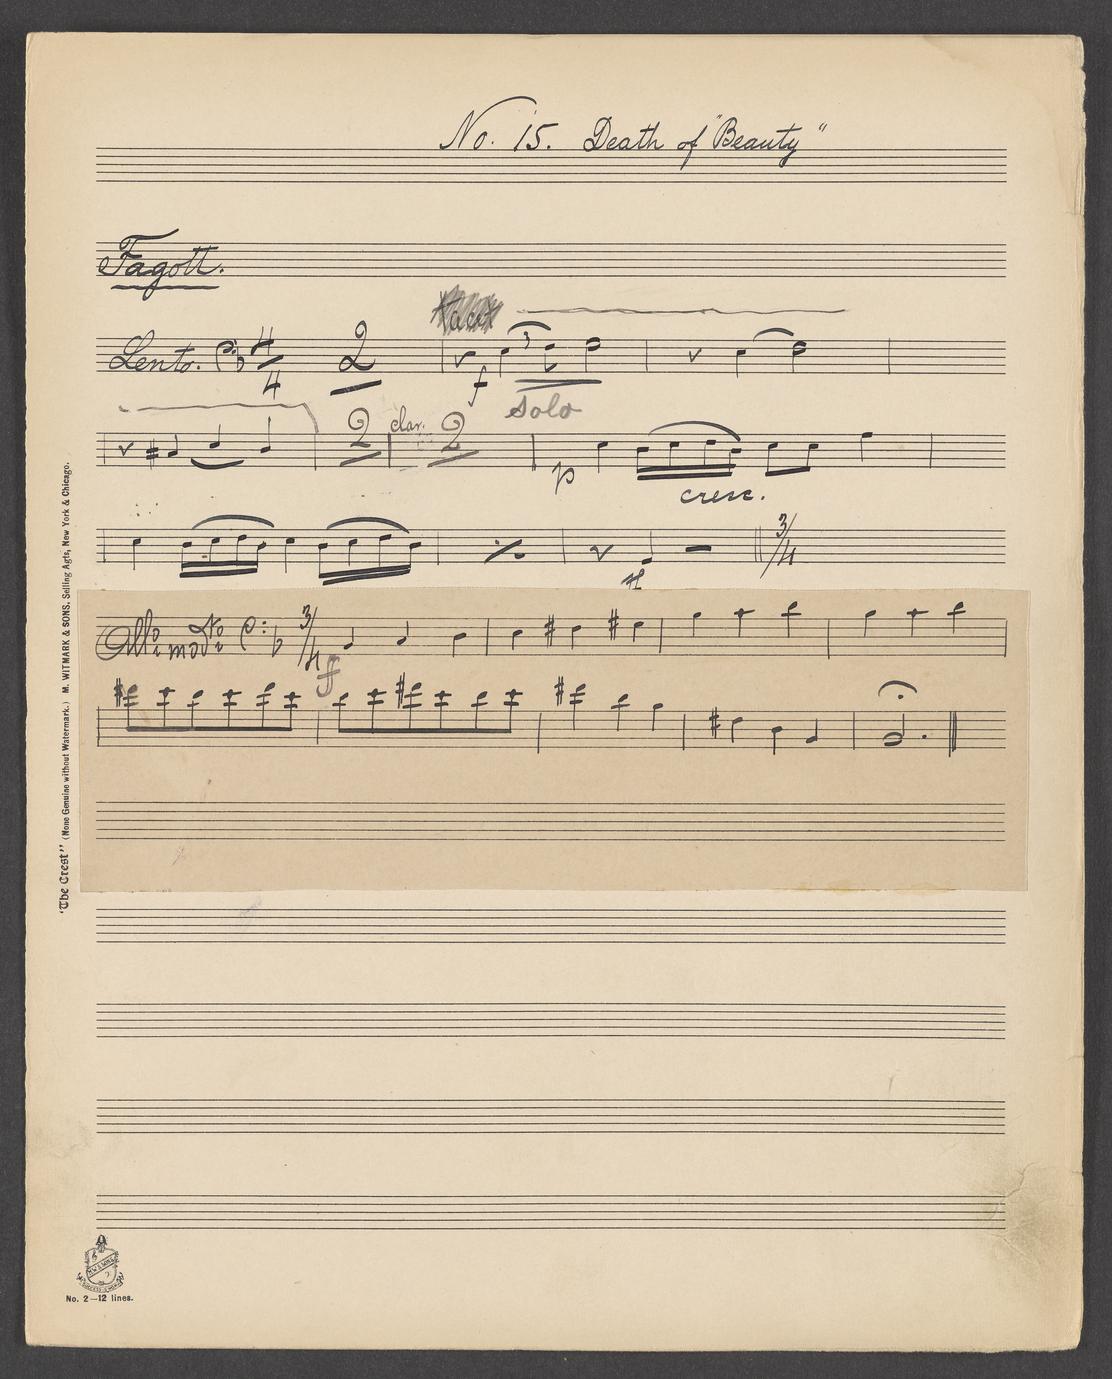 No. 15. Death of "Beauty"
Fagott.
Lento. 4/4 2
f 3
Solo
2 clar. 2
p cresc.
3/4
Allo modto 3/4
ff
"The Crest" (None Genuine without Watermark.) M. WITMARK & SONS, Selling Agts, New York & Chicago.
No. 2—12 lines.